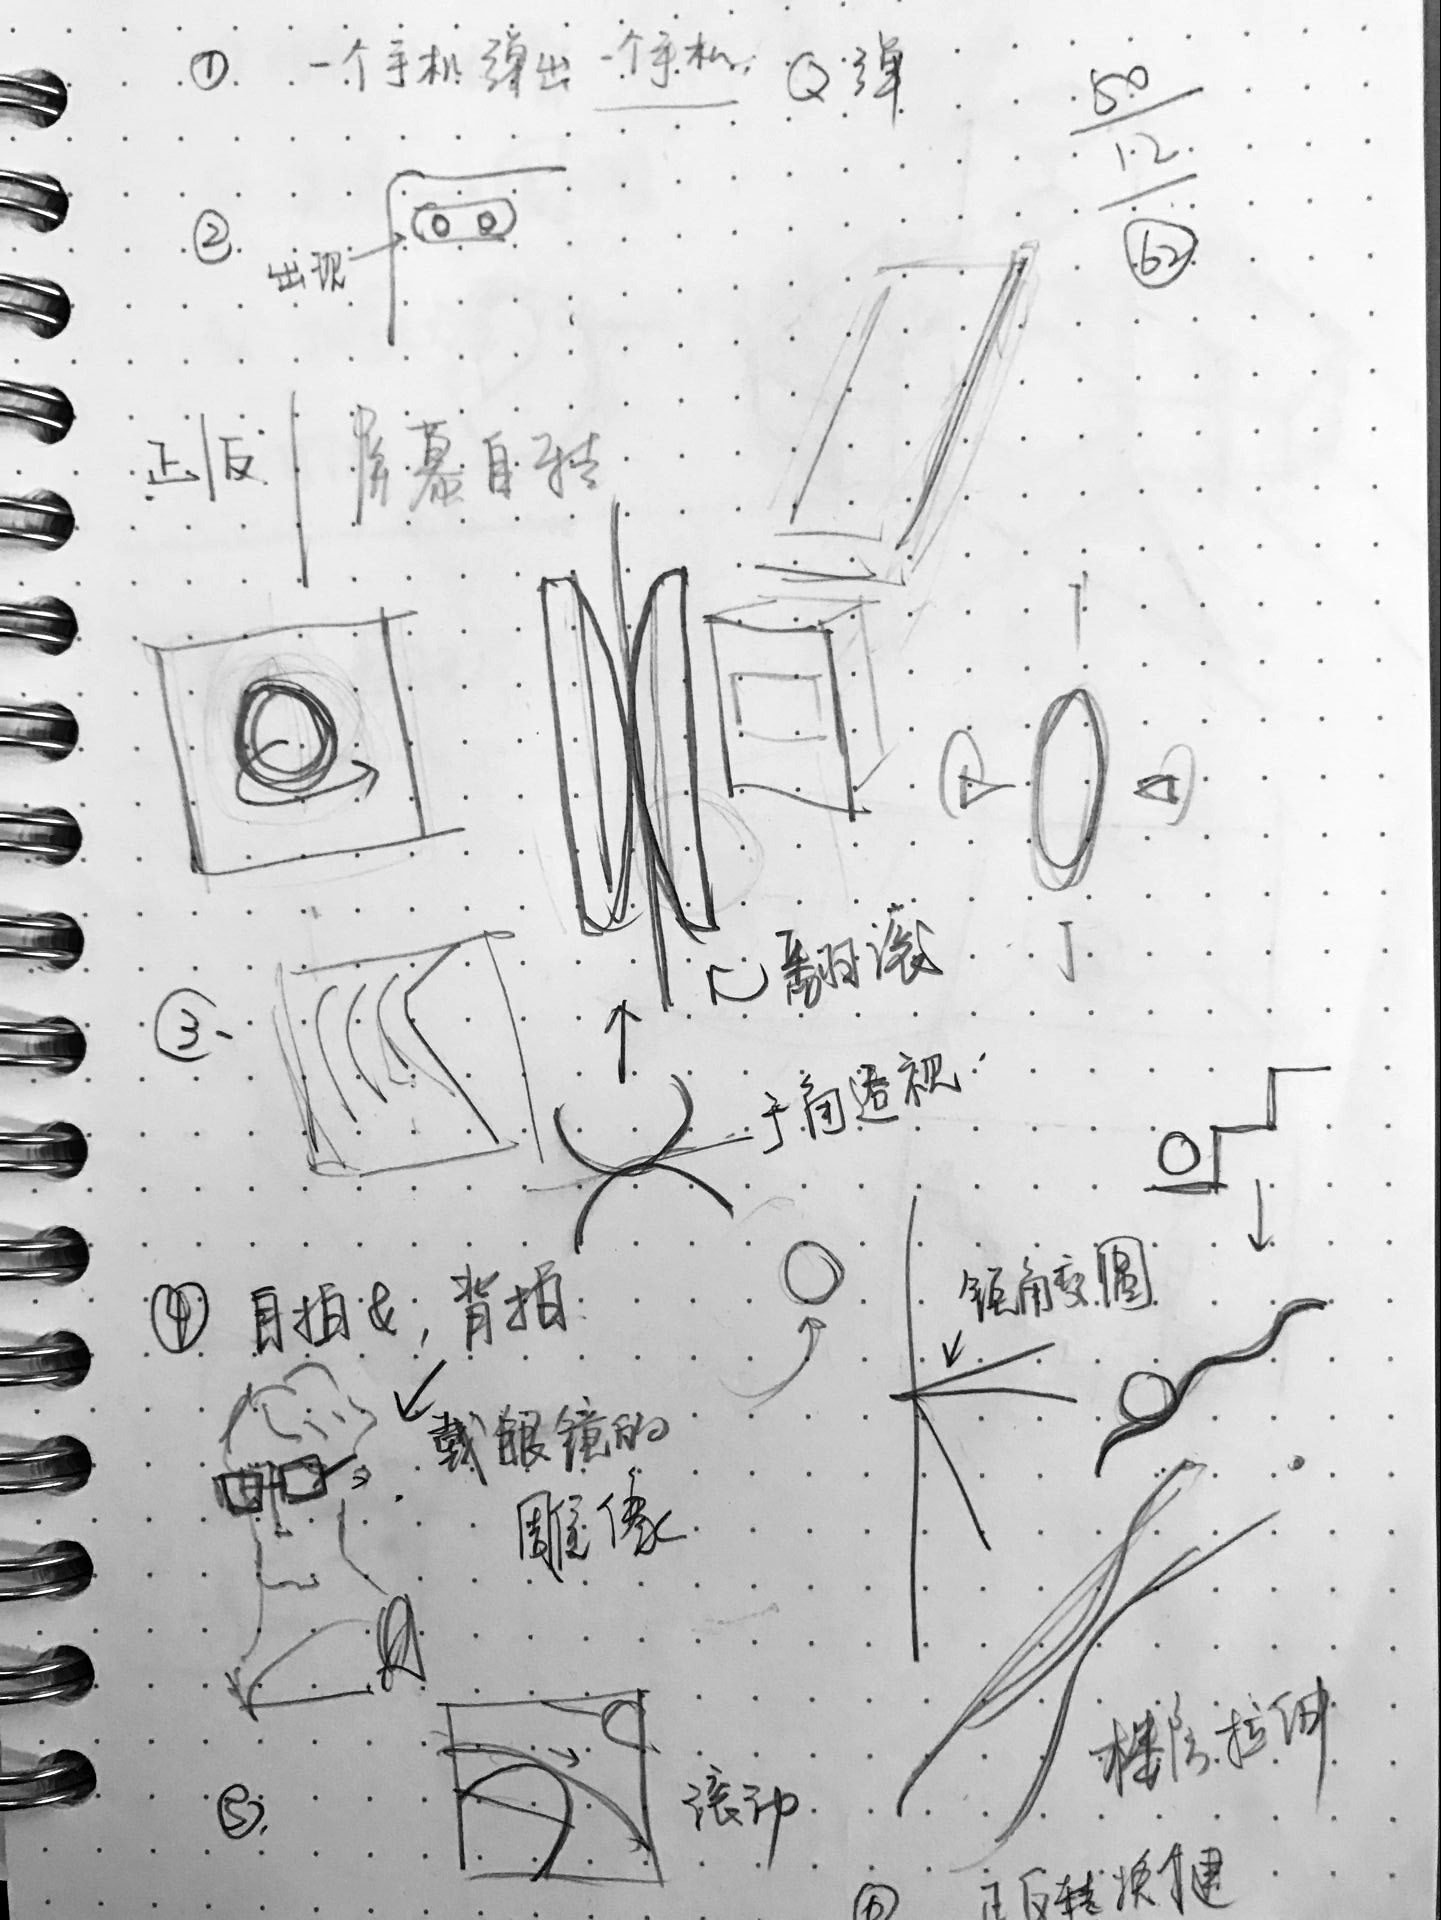 ① 一个手机弹出一个手机. Q弹
50
12
62
②
出现
正/反 屏幕自转
翻滚
③、
透视
④ 自拍&,背拍
钜角变圆
戴眼镜的
雕像
楼阶拉伸
⑤. 滚动
⑥ 正反转换